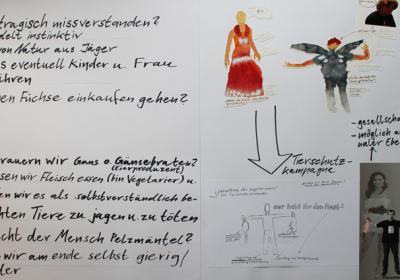 tragisch missverstanden?
delt instinktiv
von Natur aus Jäger
s eventuell Kinder u. Frau
ühren
en Füchse einkaufen gehen?
rauern wir Gans o. Gänsebraten?
(Eierproduzent)
sen wir Fleisch essen (bin Vegetarier) u.
en wir es als selbstverständlich be-
chten Tiere zu jagen u. zu töten
cht der Mensch Pelzmäntel?
wir am ende selbst gierig/
der
Tierschutz-
kampagne
- gesellscha
- möglich a
naler Ebe